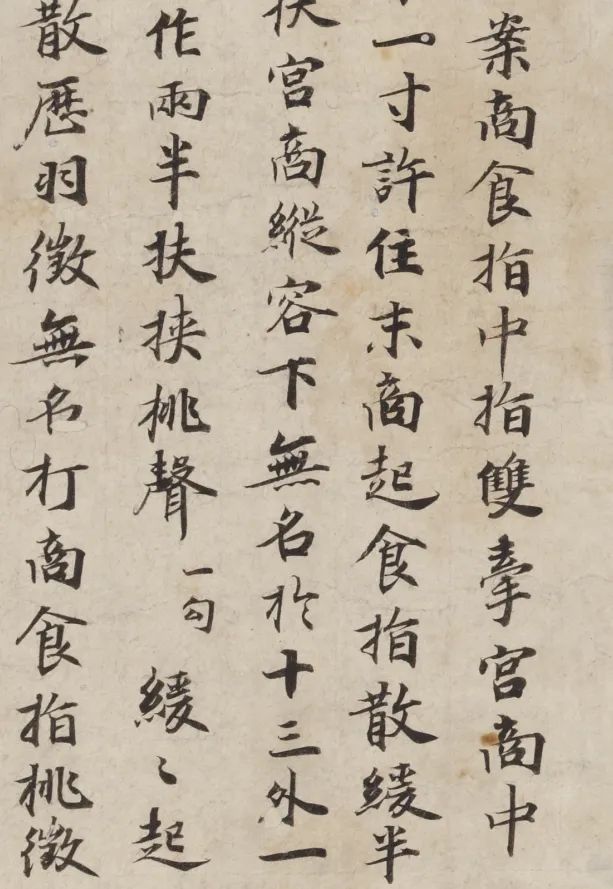 案商食指中指雙牽宮商中
一寸許住末商起食指散緩半
扶宮商縱容下無名於十三外一
作兩半扶挾挑聲一句緩〻起
散歷羽徵無名打商食指挑徵